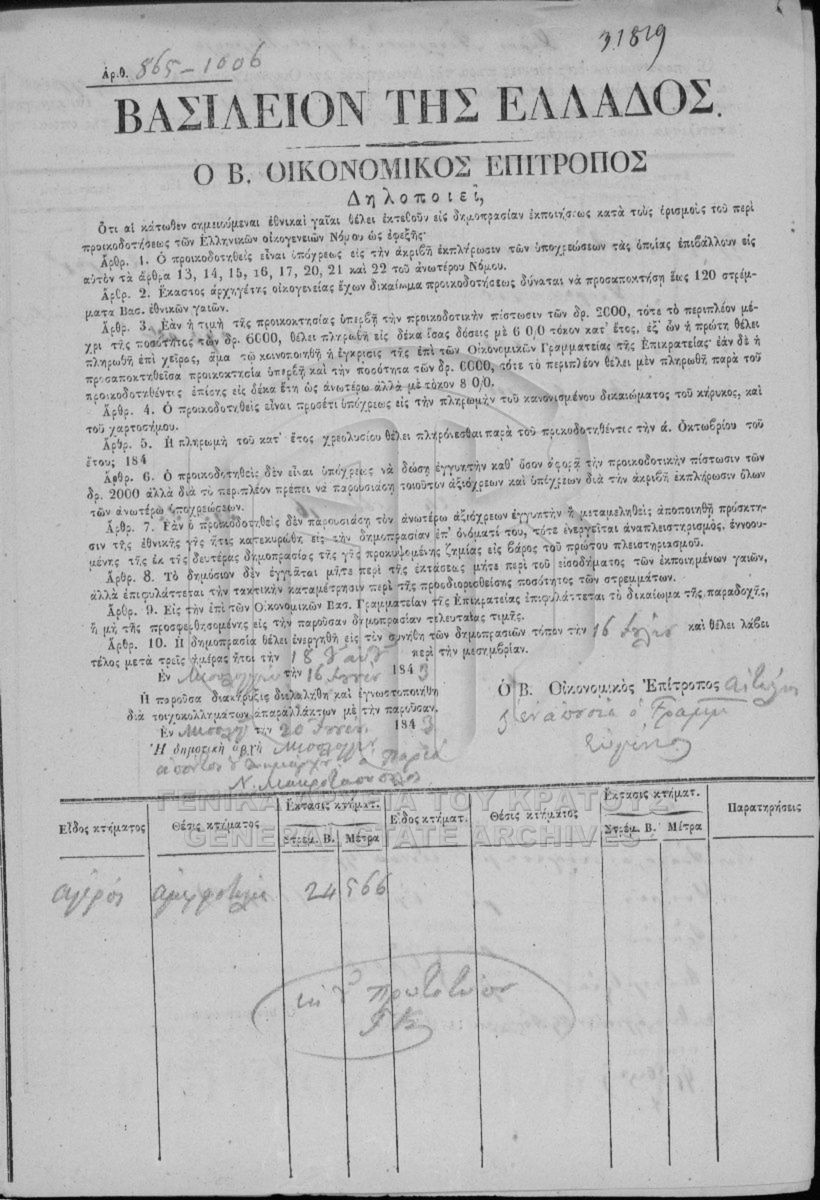 31819
Ἀρθ. 865-1006
ΒΑΣΙΛΕΙΟΝ ΤΗΣ ΕΛΛΑΔΟΣ.
Ο Β. ΟΙΚΟΝΟΜΙΚΟΣ ΕΠΙΤΡΟΠΟΣ
Δηλοποιεῖ,
Ὅτι αἱ κάτωθεν σημειούμεναι ἐθνικαὶ γαῖαι θέλει ἐκτεθοῦν εἰς δημοπρασίαν ἐκποιήσεως κατὰ τοὺς ὁρισμοὺς τοῦ περὶ
προικοδοτήσεως τῶν Ἑλληνικῶν οἰκογενειῶν Νόμου ὡς ἐφεξῆς·
Ἄρθρ. 1. Ὁ προικοδοτηθεὶς εἶναι ὑπόχρεως εἰς τὴν ἀκριβῆ ἐκπλήρωσιν τῶν ὑποχρεώσεων τὰς ὁποίας ἐπιβάλλουν εἰς
αὐτὸν τὰ ἄρθρα 13, 14, 15, 16, 17, 20, 21 καὶ 22 τοῦ ἀνωτέρου Νόμου.
Ἄρθρ. 2. Ἕκαστος ἀρχηγέτης οἰκογενείας ἔχων δικαίωμα προικοδοτήσεως δύναται νὰ προσαποκτήσῃ ἕως 120 στρέμ-
ματα Βασ. ἐθνικῶν γαιῶν.
Ἄρθρ. 3. Ἐὰν ἡ τιμὴ τῆς προικοκτησίας ὑπερβῇ τὴν προικοδοτικὴν πίστωσιν τῶν δρ. 2000, τότε τὸ περιπλέον μέ-
χρι τῆς ποσότητος τῶν δρ. 6000, θέλει πληρωθῆ εἰς δέκα ἴσας δόσεις μὲ 6 0/0 τόκον κατ' ἔτος, ἐξ' ὧν ἡ πρώτη θέλει
πληρωθῆ ἐπὶ χεῖρας, ἅμα τῷ κοινοποιηθῇ ἡ ἔγκρισις τῆς ἐπὶ τῶν Οἰκονομικῶν Γραμματείας τῆς Ἐπικρατείας· ἐὰν δὲ ἡ
προσαποκτηθεῖσα προικοκτησία ὑπερβῇ καὶ τὴν ποσότητα τῶν δρ. 6000, τότε τὸ περιπλέον θέλει μὲν πληρωθῆ παρὰ τοῦ
προικοδοτηθέντος ἐπίσης εἰς δέκα ἔτη ὡς ἀνωτέρω ἀλλὰ μὲ τόκον 8 0/0.
Ἄρθρ. 4. Ὁ προικοδοτηθεὶς εἶναι προσέτι ὑπόχρεως εἰς τὴν πληρωμὴν τοῦ κανονισμένου δικαιώματος τοῦ κήρυκος, καὶ
τοῦ χαρτοσήμου.
Ἄρθρ. 5. Ἡ πληρωμὴ τοῦ κατ' ἔτος χρεολυσίου θέλει πληρόνεσθαι παρὰ τοῦ προικοδοτηθέντος τὴν ά. Ὀκτωβρίου τοῦ
ἔτους 184
Ἄρθρ. 6. Ὁ προικοδοτηθεὶς δὲν εἶναι ὑπόχρεως νὰ δώσῃ ἐγγυητὴν καθ' ὅσον ἀφορᾷ τὴν προικοδοτικὴν πίστωσιν τῶν
δρ. 2000 ἀλλὰ διὰ τὸ περιπλέον πρέπει νὰ παρουσιάσῃ τοιοῦτον ἀξιόχρεων καὶ ὑπόχρεων διὰ τὴν ἀκριβῆ ἐκπλήρωσιν ὅλων
τῶν ἀνωτέρω ὑποχρεώσεων.
Ἄρθρ. 7. Ἐὰν ὁ προικοδοτηθεὶς δὲν παρουσιάσῃ τὸν ἀνωτέρω ἀξιόχρεων ἐγγυητὴν ἢ μεταμεληθεὶς ἀποποιηθῇ πρόσκτη-
σιν τῆς ἐθνικῆς γῆς ἥτις κατεκυρώθη εἰς τὴν δημοπρασίαν ἐπ' ὀνόματί του, τότε ἐνεργεῖται ἀναπλειστηρισμὸς, ἐννοου-
μένης τῆς ἐκ τῆς δευτέρας δημοπρασίας τῆς γῆς προκυψομένης ζημίας εἰς βάρος τοῦ πρώτου πλειστηριασμοῦ.
Ἄρθρ. 8. Τὸ δημόσιον δὲν ἐγγυᾶται μήτε περὶ τῆς ἐκτάσεως μήτε περὶ τοῦ εἰσοδήματος τῶν ἐκποιημένων γαιῶν,
ἀλλὰ ἐπιφυλάττεται τὴν τακτικὴν καταμέτρησιν περὶ τῆς προσδιορισθείσης ποσότητος τῶν στρεμμάτων.
Ἄρθρ. 9. Εἰς τὴν ἐπὶ τῶν Οἰκονομικῶν Βασ. Γραμματείαν τῆς Ἐπικρατείας ἐπιφυλάττεται τὸ δικαίωμα τῆς παραδοχῆς,
ἢ μὴ τῆς προσφερθησομένης εἰς τὴν παροῦσαν δημοπρασίαν τελευταίας τιμῆς.
Ἄρθρ. 10. Ἡ δημοπρασία θέλει ἐνεργηθῆ εἰς τὸν συνήθη τῶν δημοπρασιῶν τόπον τὴν 16 Ἰουλίου καὶ θέλει λάβει
τέλος μετὰ τρεῖς ἡμέρας ἤτοι τὴν 18 περὶ τὴν μεσημβρίαν.
Ἐν τὴν 16 Ἰουνίου 1843
Ὁ Β. Οἰκονομικὸς Ἐπίτροπος Αἰτωλίας
Ἡ παροῦσα διακήρυξις διελαλήθη καὶ ἐγνωστοποιήθη
διὰ τοιχοκολλημάτων ἀπαραλλάκτων μὲ τὴν παροῦσαν.
Ἐν τὴν 20 Ἰουνίου 1843
Ἡ δημοτικὴ ἀρχὴ
ΓΕΝΙΚΑ ΑΡΧΕΙΑ ΤΟΥ ΚΡΑΤΟΥΣ
GENERAL STATE ARCHIVES
Εἶδος κτήματος Θέσις κτήματος Ἔκτασις κτήματ. Εἶδος κτήματ. Θέσις κτήματος Ἔκτασις κτήματ. Παρατηρήσεις
Στρέμ. Β. Μέτρα Στρέμ. Β. Μέτρα
ἀγρός 24 566